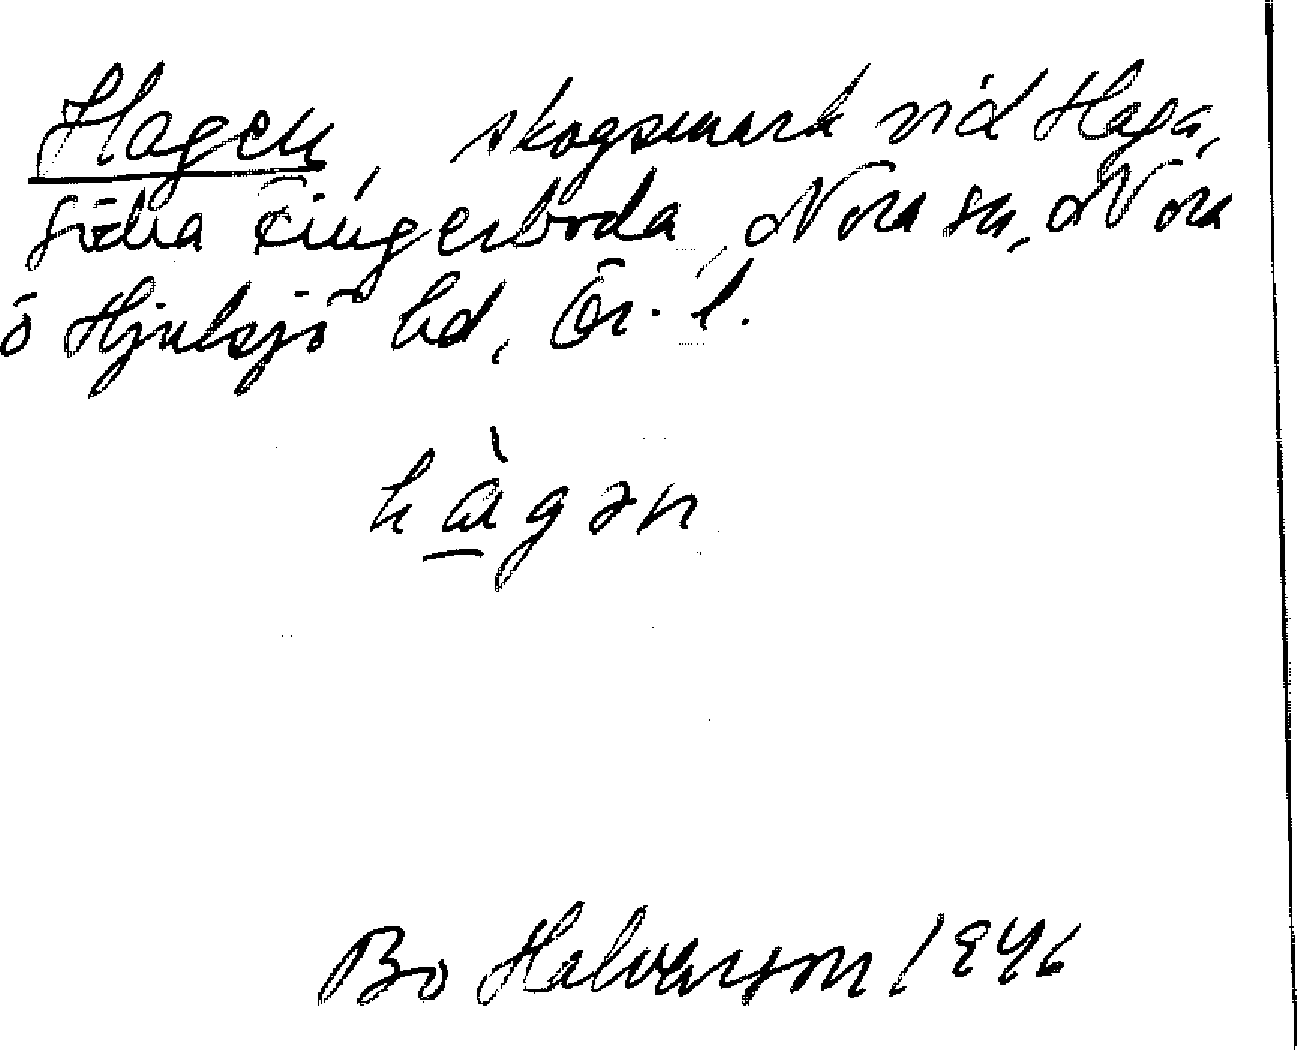 Hagen, skogsmark vid Haga,
Södra Fingerboda, Nora sn, Nora
o Hjulsjö hd, Ör. l.
hàgən
Bo Halvarson 1946